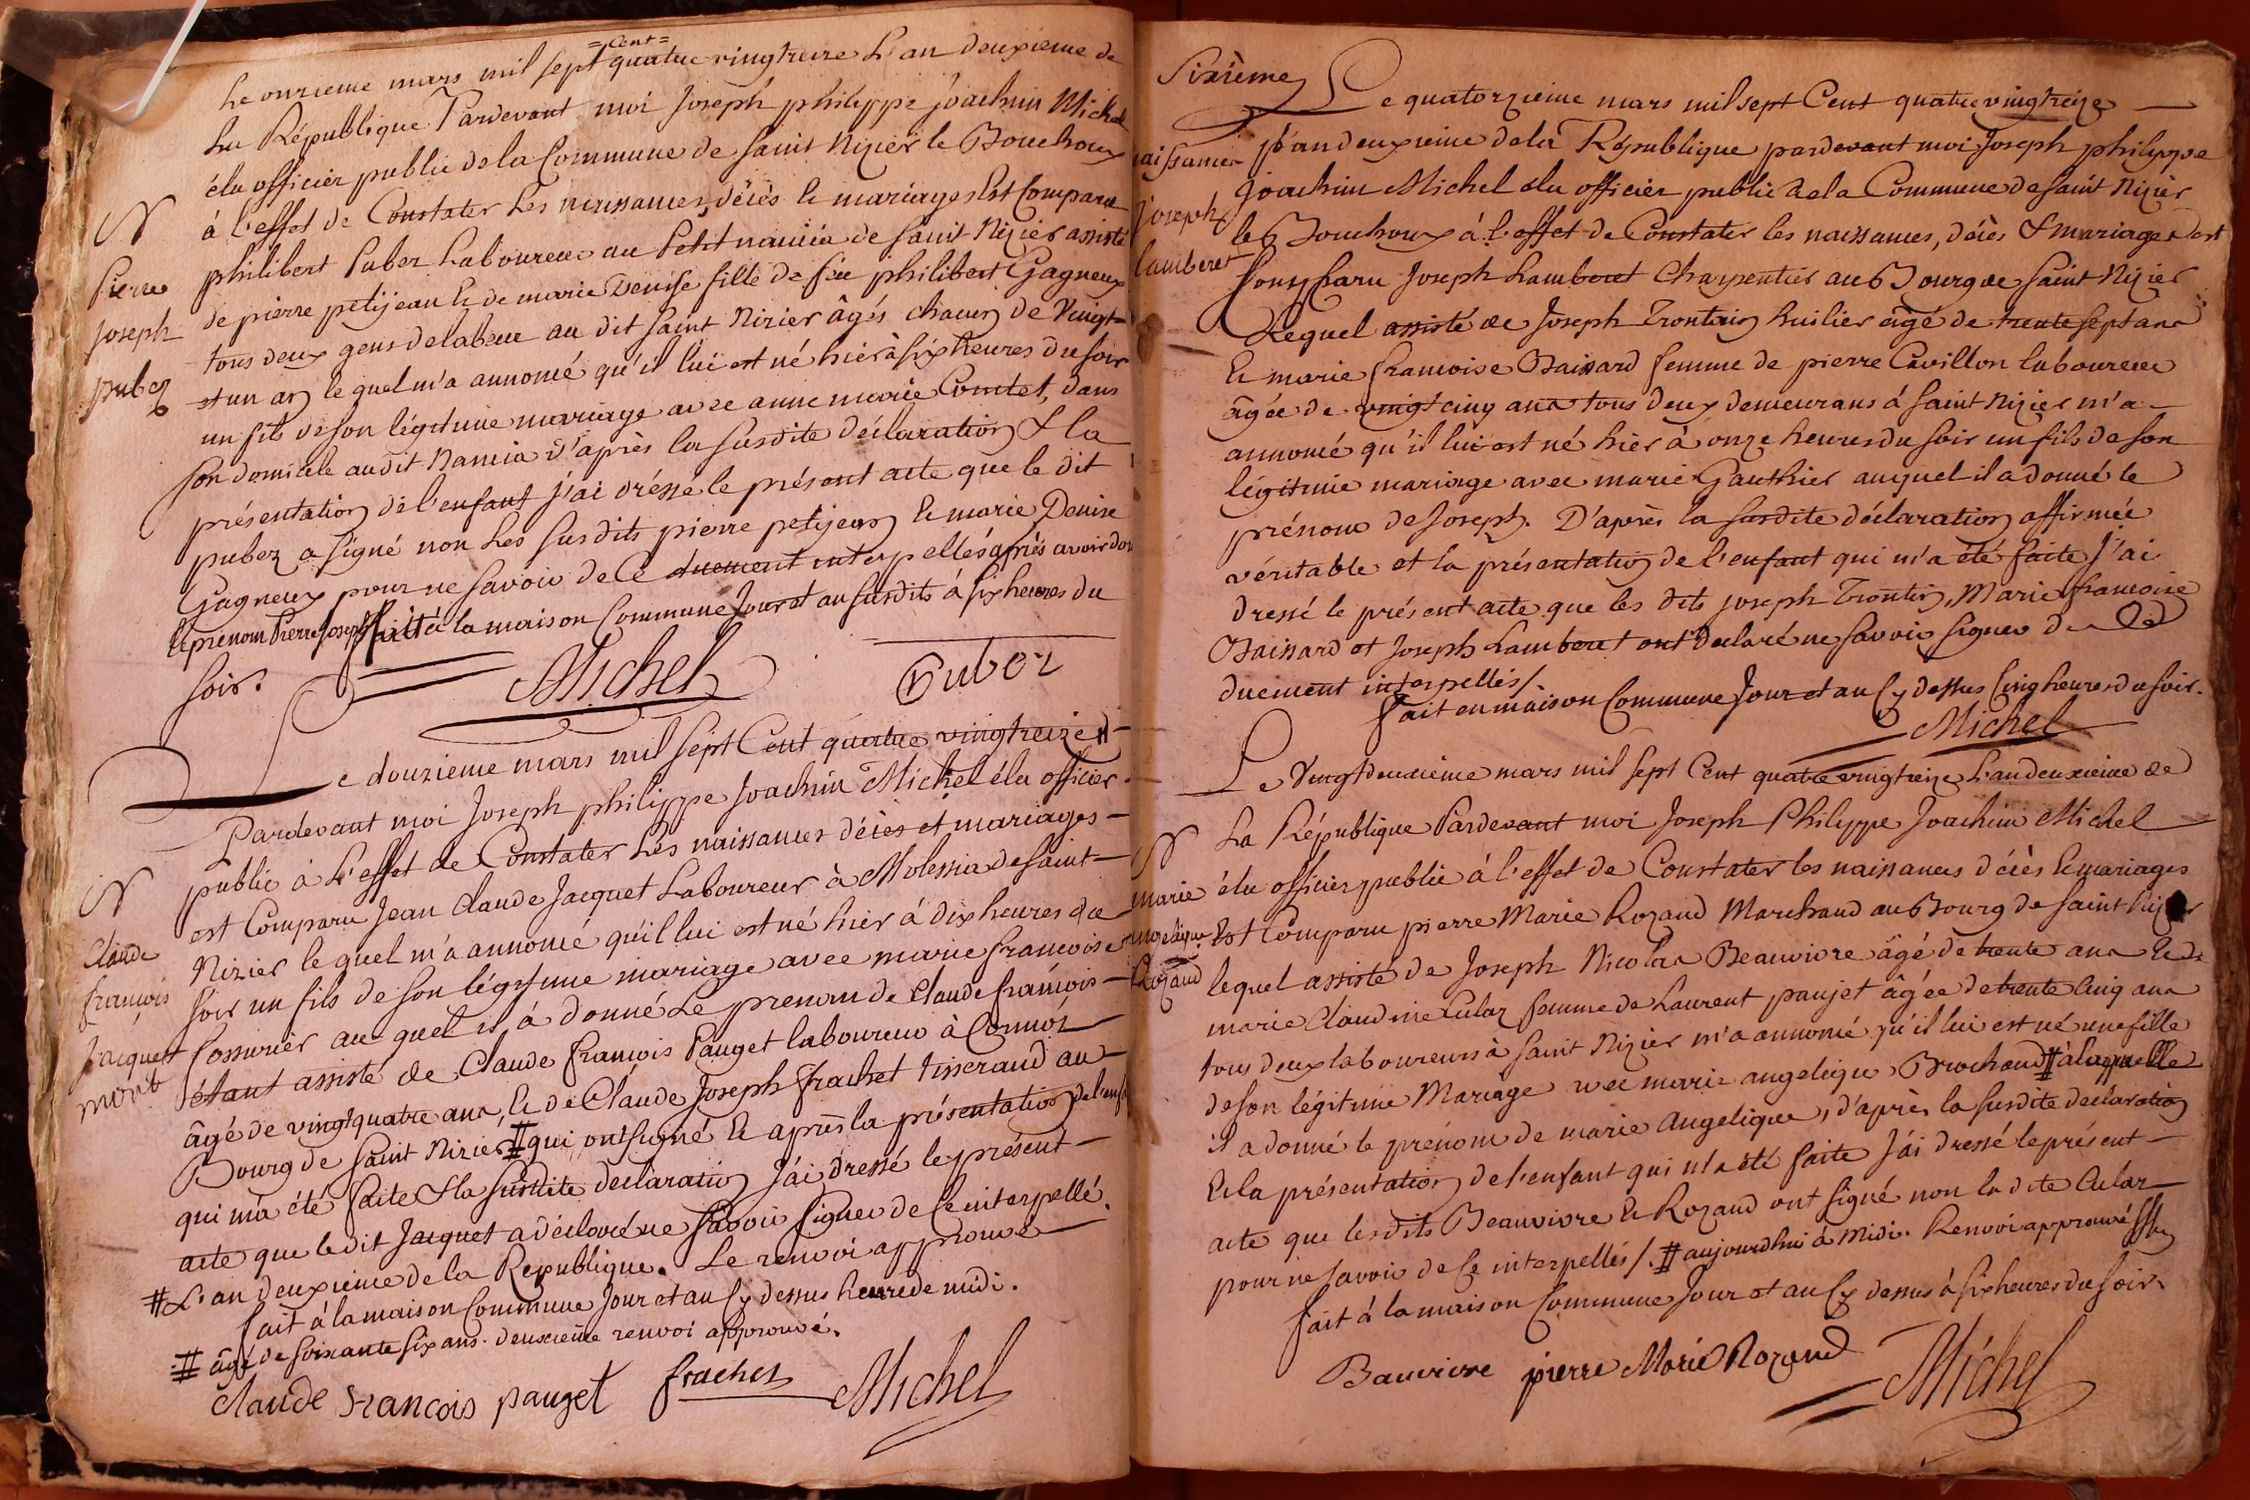 Le onzieme mars mil sept =Cent= quatre vingt treize L'an deuxieme de
La République Pardevant moi Joseph philippe joachim Michel
élu officier public de la Commune de saint Nizier le Bouchoux
à l'effet de Constater Les naissances, décès & mariages Est Comparu
N
philibert Pubez Laboureur au Petit namia de saint Nizier assisté
Pierre
de pierre petijean & de marie Denise fille de feu philibert Gagneux
Joseph
tous deux gens de labeur au dit saint Nizier âgés chacun de Vingt=
pubez
et un an lequel m'a annoncé qu'il lui est né hier à six heures du soir
un fils de son légitime mariage avec anne marie Contet, dans
son domicile audit Namia d'après la susdite déclaration & la
présentation de l'enfant j'ai dréssé le présent acte que le dit
pubez a signé non Les susdits pierre petijean & marie Denise
Gagneux pour ne savoir de Ce duement interpellés après avoir don
le prenom Pierre Joseph fait à la maison Commune Jour et an susdits à six heures du
soir.
Michel
Pubez
Le douzieme mars mil sept Cent quatre vingtreize #
Pardevant moi Joseph philippe Joachim Michel élu officier
public à L'effet de Constater Les naissances décès et mariages
N
est Comparu Jean Claude Jacquet Laboureur à Molessia de saint
Claude
Nizier lequel m'a annoncé qu'il lui est né hier à dix heures du
françois
soir un fils de son légitime mariage avec marie francoise
Jacquet
Cossurier au quel il à donné Le prenom de Claude françois
mort
étant assisté de Claude françois Pauget laboureur à Connoz
âgé de vingt quatre ans, & de Claude Joseph frachet tisserand au
Bourg de saint Nizier # qui ont signé & après la présentation de l'enfa
qui m'a été faite & la susdite déclaration J'ai dressé le présent
acte que ledit Jacquet a déclaré ne savoir signer de Ce interpellé.
# L'an deuxieme de la Republique. Le renvoi approuvé
fait à la maison Commune Jour et an Cy dessus heure de midi.
# âgé de soixante six ans. deuxieme renvoi approuvé.
Claude Francois pauget frachet Michel
Sixième Le quatorzieme mars mil sept Cent quatre vingtreize
naissance L'an deuxieme de la République pardevant moi Joseph philippe
joachim Michel élu officier public de la Commune de saint Nizier
Joseph
le Bouchoux à l'effet de Constater les naissances, décès & mariages est
Lamberet
Comparu Joseph Lamberet Charpentier au Bourg de saint Nizier
Lequel assisté de Joseph Trontin huilier âgé de trente sept ans
& marie francoise Baissard femme de pierre Cavillon laboureur
âgée de vingt cinq ans tous deux demeurans à saint Nizier m'a
annoncé qu'il lui est né hier à onze heures du soir un fils de son
légitimie mariage avec marie Gauthier auquel il a donné le
prénom de Joseph. D'après la susdite déclaration affirmée
véritable et la présentation de l'enfant qui m'a été faite J'ai
dressé le présent acte que les dits joseph Trontin, Marie francoise
Baissard et Joseph Lamberet ont déclaré ne savoir signer de Ce
duement interpellés /.
fait en maison Commune Jour et an Cy dessus Cinq heures du soir.
Michel
Le Vingtdeuxième mars mil sept Cent quatre vingtreize L'an deuxieme de
N
La République Pardevant moi Joseph Philippe Joachim Michel
marie
élu officier public à l'effet de Constater les naissances décès & mariages
angelique
Est Comparu pierre Marie Rozand Marchand au Bourg de saint Nizier
Rozand
lequel assisté de Joseph Nicolas Beauvivre âgé de trente ans & de
marie Claudine Cular femme de Laurent paujet âgée de trente Cinq ans
tous deux laboureurs à saint Nizier m'a annoncé qu'il lui est né une fille
de son légitime Mariage avec marie angelique Brochand # à laquelle
il a donné le prénom de marie Angelique, d'après la susdite déclaration
& la présentation de l'enfant qui m'a été faite J'ai dressé le présent
acte que lesdits Beauvivre & Rozand ont signé non la dite Cular
pour ne savoir de Ce interpellés /. # aujourdhui à Midi. Renvoi approuvé
fait à la maison Commune Jour et an Cy dessus à six heures du soir.
Bauvivre pierre Marie Rozand Michel